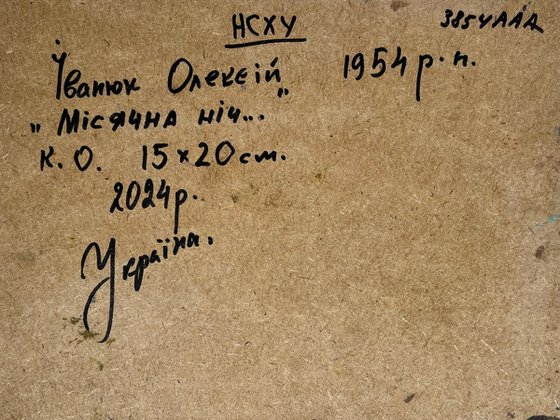 НСХУ
385УААА
Іванюк Олексій 1954 р.н.
"Місячна ніч..."
К.О. 15×20 см.
2024р.
Україна.